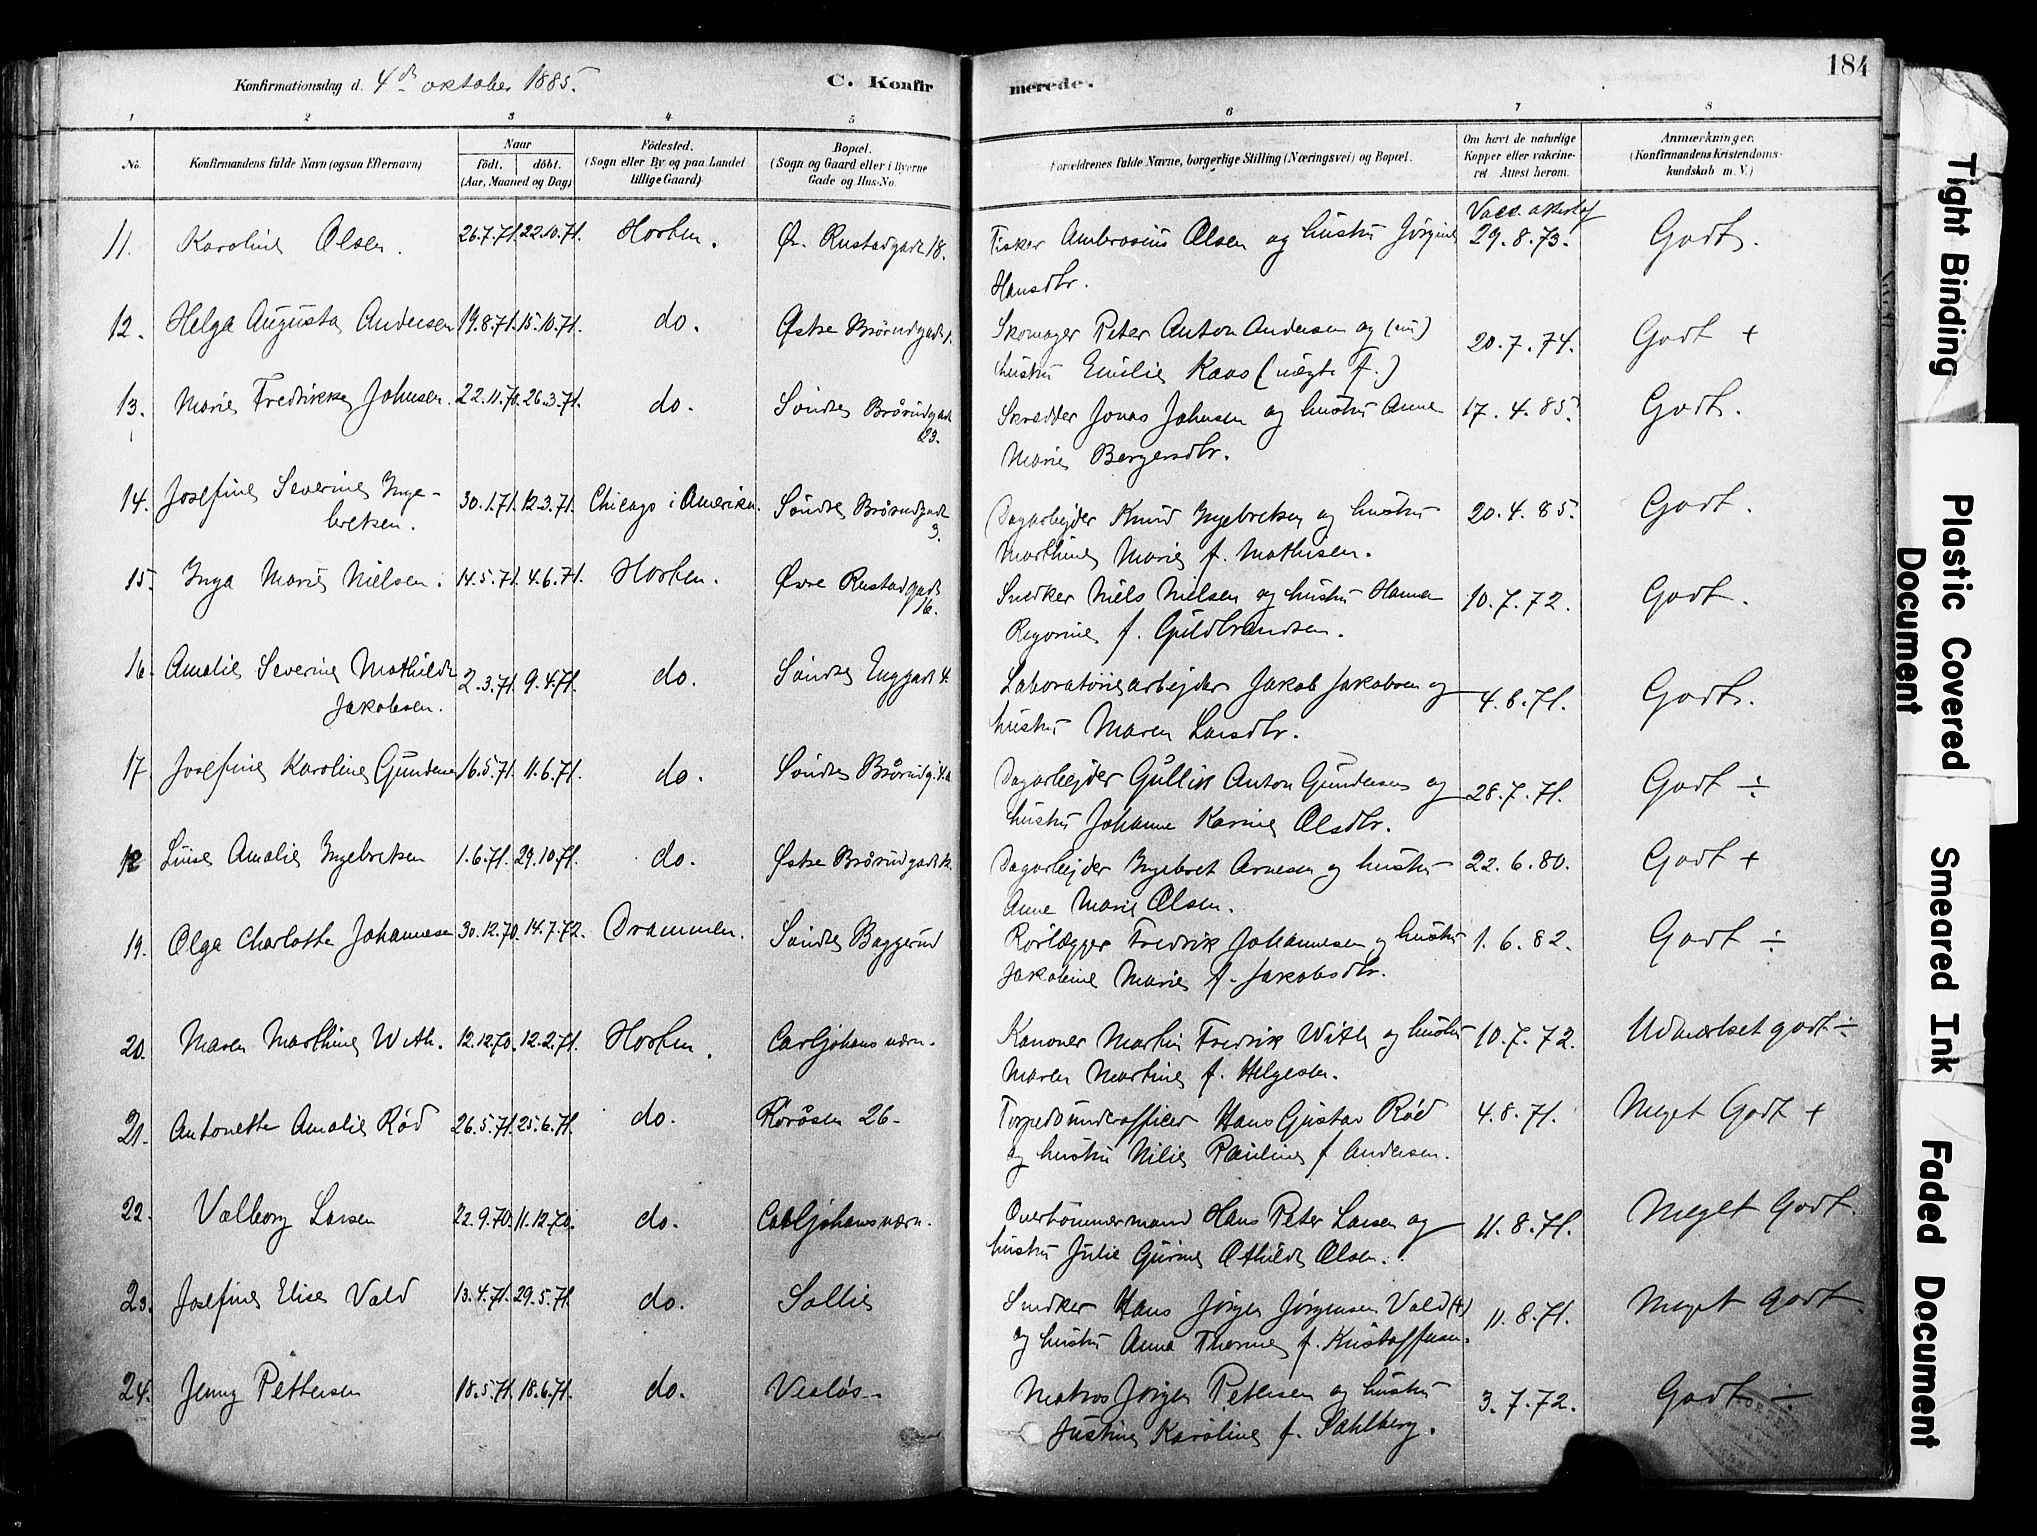 Konfirmationsdag d. 4de oktober 1885.
C. Konfir
merede.
184
1 2 3 4 5 6 7 8
No.
Konfirmandens fulde Navn (ogsaa Efternavn)
Naar
født. døbt.
(Aar, Maaned og Dag)
Fødested.
(Sogn eller By og paa Landet
tillige Gaard)
Bopæl.
(Sogn og Gaard eller i Byerne
Gade og Hus-No.
Forældrenes fulde Navne, borgerlige Stilling (Næringsvei) og Bopæl.
Om havt de naturlige
Kopper eller vakcine-
ret Attest herom.
Anmærkninger.
(Konfirmandens Kristendoms-
kundskab m. V.)
11. Karoline Olsen. 26.7.71. 22.10.71. Horten. Øv. Rustadgade 18. Fisker Ambrosius Olsen og hustru Jørgine Vacc. attest af 29.8.73. Godt.
Hansdtr.
12. Helga Augusta Andersen 19.8.71. 15.10.71. do. Østre Brårudgade 1. Skomager Peter Anton Andersen og 20.7.74. Godt +
hustru Emilie Kaas (uægte f.)
13. Marie Fredrikke Johnsen. 22.11.70. 26.3.71. do. Søndre Brårudgade Skrædder Jonas Johnsen og hustru Anne 17.4.85. Godt.
23. Marie Bergersdtr.
14. Josefine Severine Inge- 30.1.71. 12.3.71. Chicago i Amerika. Søndre Brårudgade Dagarbejder Knud Ingebretsen og hustru 20.4.85. Godt.
bretsen. 3. Marthine Marie f. Mathisen.
15. Inga Marie Nielsen. 14.5.71. 4.6.71. Horten. Øvre Rustadgade Snedker Niels Nielsen og hustru Hanna 10.7.72. Godt.
16. Regorine f. Guldbrandsen.
16. Amalie Severine Mathilde 2.3.71. 9.4.71. do. Søndre Enggade 4. Laboratoriearbejder Jakob Jakobsen og 4.8.71. Godt.
Jakobsen. hustru Maren Larsdtr.
17. Josefine Karoline Gundersen 16.5.71. 11.6.71. do. Søndre Brårudg. Dagarbejder Gullik Anton Gundersen og 28.7.71. Godt ÷
hustru Johanne Karine Olsdtr.
18 Luise Amalie Ingebretsen 1.6.71. 29.10.71. do. Østre Brårudgade Dagarbejder Ingebret Arnesen og hustru 22.6.80. Godt +
Anne Marie Olsen.
19. Olga Charlotte Johannesen 30.12.70. 14.7.72. Drammen. Søndre Baggerud Rørlægger Fredrik Johannesen og hustru 1.6.82. Godt ÷
Jakobine Marie f. Jakobsdtr.
20. Maren Marthine With. 12.12.70. 12.2.71. Horten. Carljohansværn. Kanoner Martin Fredrik With og hustru 10.7.72. Udmærket godt ÷
Maren Martine f. Helgesen.
21. Antonette Amalie Rød 26.5.71. 25.6.71. do. Røråsen 26. Torpedounderofficer Hans Gustav Rød 4.8.71. Meget Godt +
og hustru Nilie Pauline f Andersen.
22. Valborg Larsen 22.9.70. 11.12.70. do. Carljohansværn. Overtømmermand Hans Peter Larsen og 11.8.71. Meget Godt.
hustru Julie Gurine Othilde Olsen.
23. Josefine Elise Vold 13.4.71. 29.5.71. do. Sollie Snedker Hans Jørgen Jørgensen Vold (+) 11.8.71. Meget godt.
og hustru Anne Thorine f. Kristoffersen.
24. Jenny Pettersen 18.5.71. 18.6.71. do. Vealøs. Matros Jørgen Pettersen og hustru 3.7.72. Godt ÷
Justine Karoline f. Dahlberg.
Tight Binding
Plastic Covered
Document
Smeared Ink
Faded Document